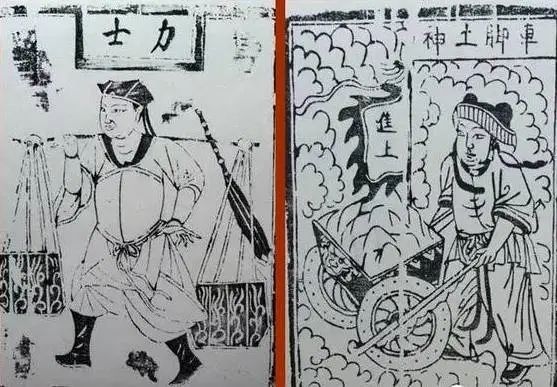 力士
車脚土神
進上